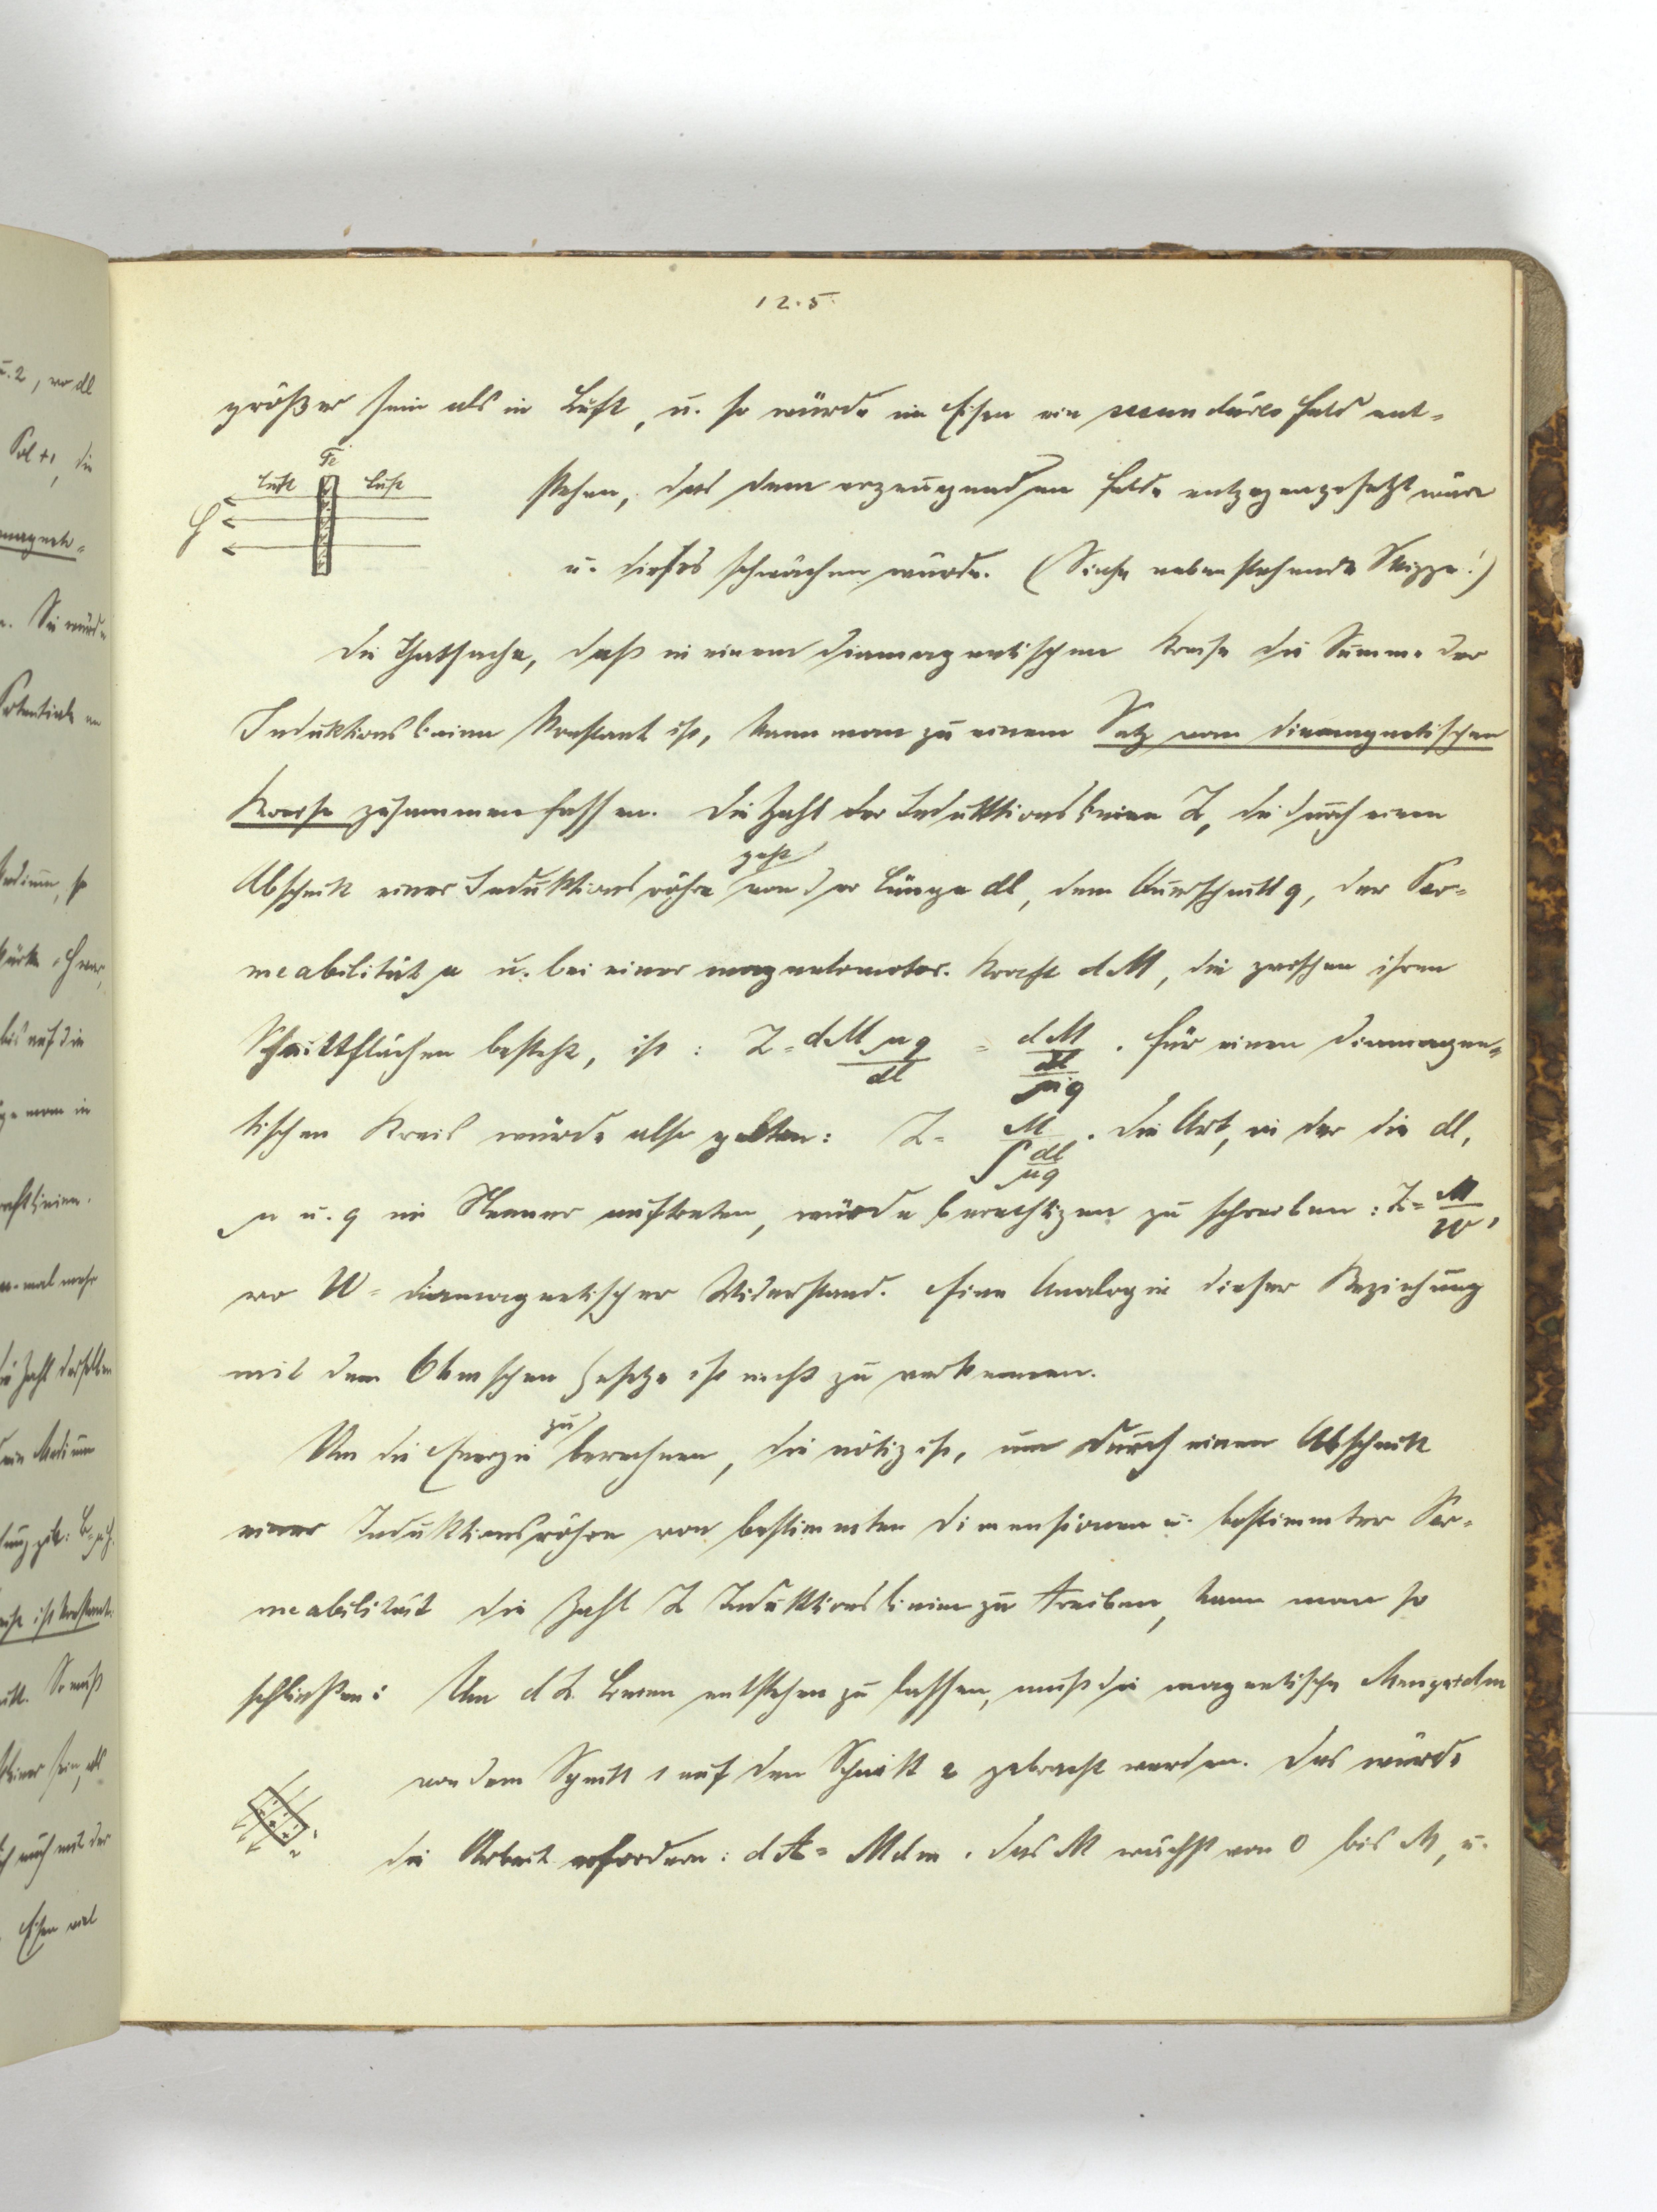 12.5.
größer sein als in Luft, u. so würde im Eisen ein secundäres Feld ent-
Fe
Luft Luft
H
stehen, das dem erzeugenden Felde entgegengesetzt wäre
u. dieses schwächen würde. (Siehe nebenstehende Skizze!)
Die Thatsache, daß in einem diamagnetischen Kreise die Summe der
Induktionslinien konstant ist, kann man zu einem Satz vom diamagnetischen
Kreise zusammenfassen. Die Zahl der Induktionslinien Z, die durch einen
Abschnitt einer Induktionsröhre geht von der Länge dl, dem Querschnitt q, der Per-
meabilität μ u. bei einer magnetomotor. Kraft dM, die zwischen ihren
Schnittflächen besteht, ist: Z = dM μq / dl = dM / (dl / μq). Für einen diamagne-
tischen Kreis würde also gelten: Z = M / ∫ dl/μq. Die Art, in der die dl,
μ u. q im Nenner auftreten, würde berechtigen zu schreiben: Z = M/W,
wo W = diamagnetischer Widerstand. Eine Analogie dieser Beziehung
mit dem Ohmschen Gesetze ist nicht zu verkennen.
Um die Energie zu berechnen, die nötig ist, um durch einen Abschnitt
einer Induktionsröhre von bestimmten Dimensionen u. bestimmter Per-
meabilität die Zahl Z Induktionslinien zu treiben, kann man so
schließen: Um dZ Linien entstehen zu lassen, muß die magnetische Menge + dm
von dem Schnitt 1 auf den Schnitt 2 gebracht werden. Das würde
die Arbeit erfordern: dA = M dm. Das M wächst von 0 bis M, u.